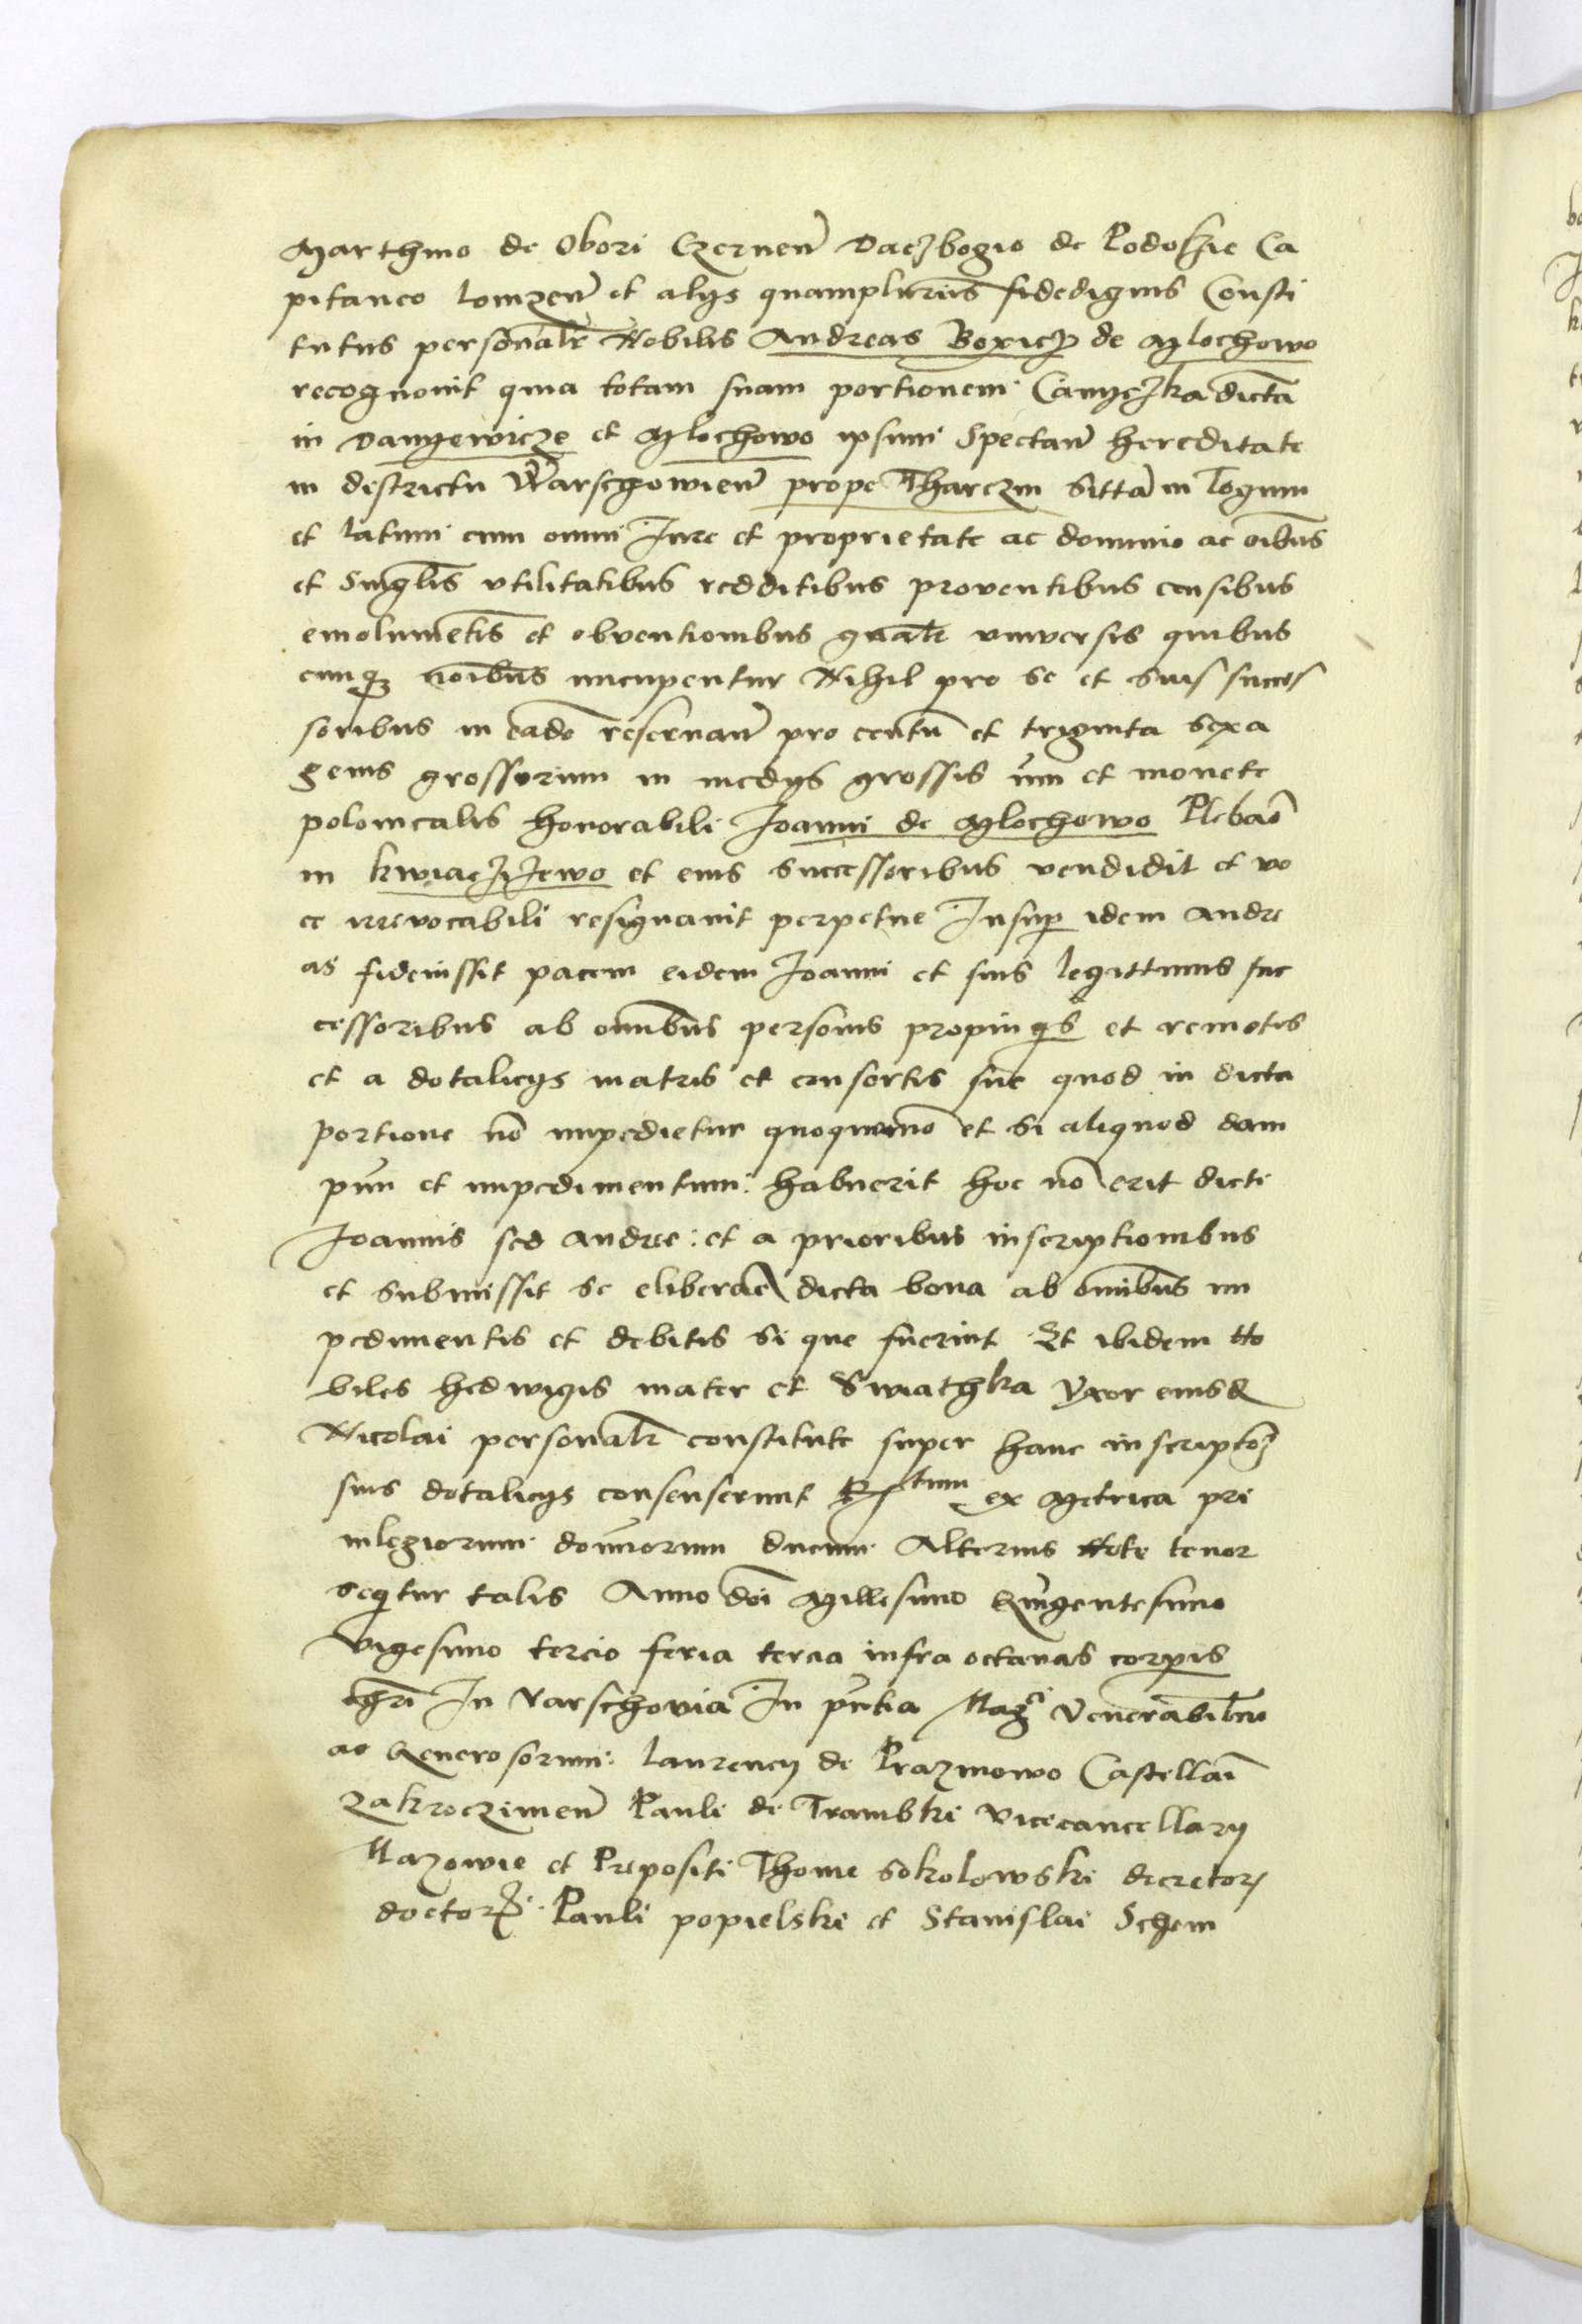 Marthino de Obori Czernen̄ Daczbogio de Podosze Ca
pitaneo Lomzen̄ et alys quamplurib̄s fidedignis Consti
tutus personalr̄ Nobilis Andreas Boxicz de Mlochowo
recognouit quia totam suam portionem Camyczka dictā
in Danyewicze et Mlochowo ipsum Spectan̄ hereditate
in districtu Warschowien̄ prope Tharczin Sittā in Lōgum
et latum cum omni Jure et proprietate ac dominio ac oībus
et Singl̄is vtilitatibus redditibus prouentibus censibus
emolumētis et obventionibus gnalr̄ vniversis quibus
cunq₃ noībus nuncupentur Nihil pro se et suis succes
soribus in eadē reseruan̄ pro centū et triginta sexa
genis grossorum in medys grossis nūi et monete
polonicalis honorabili Joanni de Mlochowo Plebaō
in kwiaczijewo et eius Successoribus vendidit et vo
ce irrevocabili resignauit perpetue Insup̱ idem Andre
as fideiussit pacem eidem Joanni et suis legittimis suc
cessoribus ab omnibūs personis propinq̱s et remotis
et a dotalicys matris et consortis sue quod in dicta
portione nō impedietur quoquomō et si aliquod dam
pnū et impedimentum habuerit hoc nō erit dicti
Joannis sed Andree et a prioribus inscriptionibus
et submissit se eliberāe dicta bona ab omībus im
pedimentis et debitis si que fuerint Et ibidem No
biles hedwigis mater et Swiathka Vxor eiusd̄
Nicolai personalr̄ constitute super hanc inscriptōē
suis dotalicys consenserunt Rstum ex Metrica pri
uilegiorum domīnorum ducum Alterius Note tenor
seq̄tur talis Anno dōi Millesimo Quīgentesimo
Vigesimo tercio feria tercia infra octauas corpis̱
chrī In Varschouia In pn̄tia Magc̄i Venerabiliūm
ac Generosorum Laurency de Prazmowo Castellāi
zakroczimen̄ Pauli de Trambki Vicecancellary
Mazowie et Prepositi Thome Sokolowski decretoꝝ
doctorꝭ Pauli popielski et Stanislai Schem